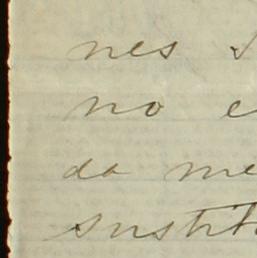 nes
no
da me
sustit